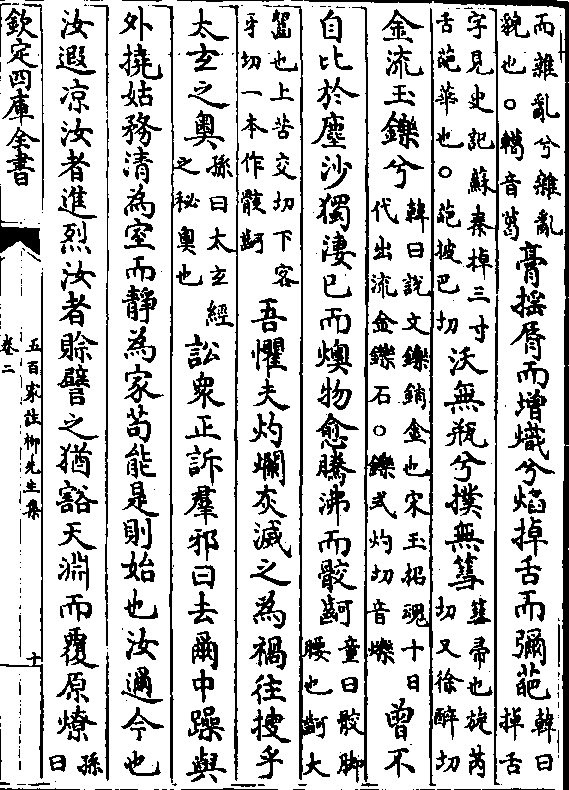 而雜亂兮雜亂貌也○轕音葛膏揺脣而增熾兮焰掉舌而彌葩韓曰掉舌
字見史記蘇秦掉三寸舌葩華也○葩披巴切沃無瓶兮撲無篲篲帚也旋芮切又徐醉切
金流玉鑠兮韓曰說文鑠銷金也宋玉招魂十日代出流金鑠石○鑠式灼切音爍曾不
自比於塵沙獨淒已而燠物愈騰沸而骹齖童曰骹脚腰也齖大
也上苦交切下客牙切一本作骸齖吾懼夫灼爛灰滅之為禍往搜乎
太玄之奥孫曰太玄經之秘奥也訟衆正訴羣邪曰去爾中躁與
外撓姑務清為室而靜為家苟能是則始也汝邇今也
汝遐凉汝者進烈汝者賖譬之猶豁天淵而覆原燎孫曰
欽定四庫全書
五百家註柳先生集
卷二
十